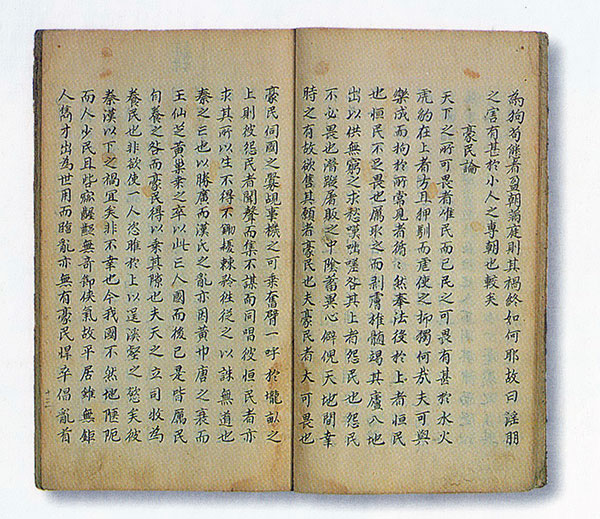 為狗苟態者盈朝滿庭則其禍終如何耶故曰淫朋
之害有甚於小人之專朝也較矣
豪民論
天下之所可畏者唯民而已民之可畏有甚於水火
虎豹在上者方且狎馴而虐使之抑獨何哉夫可與
樂成而拘於所常見者循〻然奉法役於上者恒民
也恒民不足畏也厲取之而剥膚椎髓竭其廬入地
出以供無窮之求愁嘆咄嗟咎其上者怨民也怨民
不必畏也潛蹤屠販之中陰蓄異心僻倪天地間幸
時之有故欲售其願者豪民也夫豪民者大可畏也
豪民伺國之釁覘事機之可乘奮臂一呼於壠畝之
上則彼怨民者聞聲而集不謀而同唱彼恒民者亦
求其所以生不得不鋤耰棘矜徃從之以誅無道也
秦之亡也以勝廣而漢氏之亂亦因黃巾唐之衰而
王仙芝黃巢乘之卒以此亡人國而後已是皆厲民
自養之咎而豪民得以乘其隙也夫天之立司牧為
養民也非欲使一人恣睢於上以逞溪壑之慾矣彼
秦漢以下之禍宜矣非不幸也今我國不然地陿阨
而人少民且呰寙齷齪無奇節俠氣故平居雖無鉅
人雋才出為世用而臨亂亦無有豪民悍卒倡亂首
十三